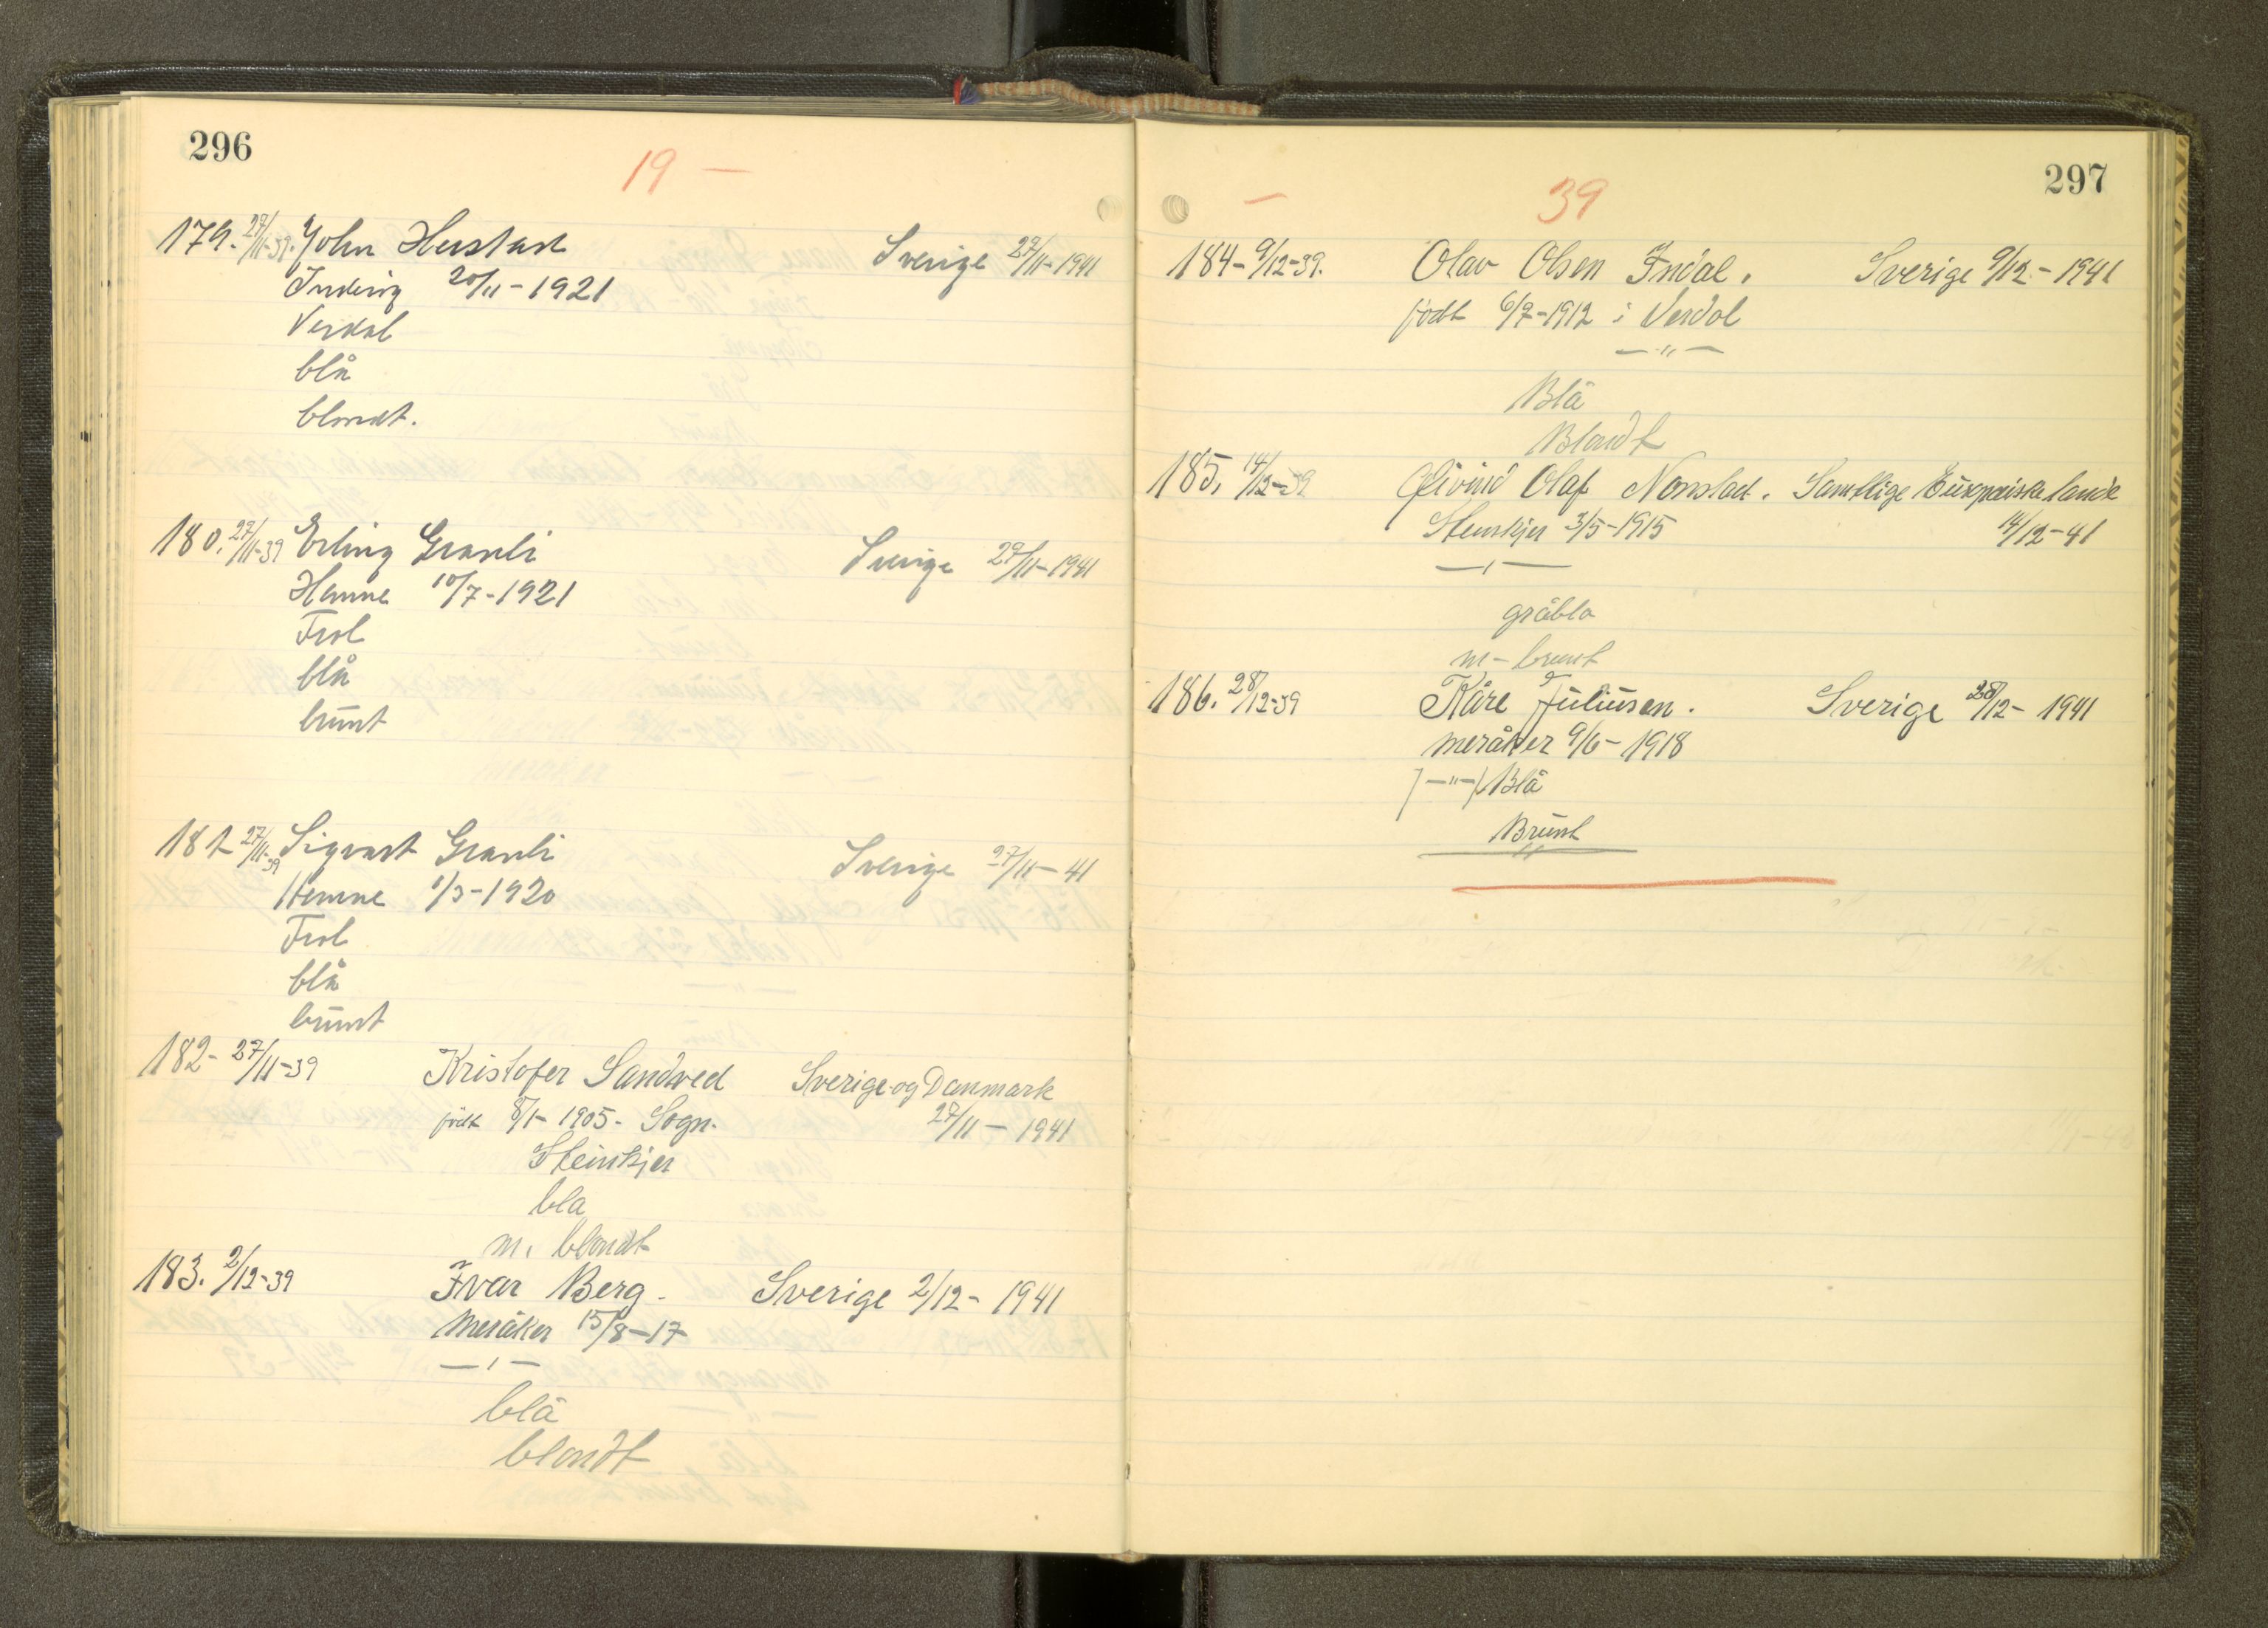 296
19 —
179. 27/11-39. John Herstad Sverige 27/11-1941
Inderøy 20/11-1921
Verdal
blå
blondt.
180. 27/11-39 Erling Granli Sverige 27/11-1941
Hemne 10/7-1921
Frol
blå
brunt
181 27/11-39 Sigvart Granli Sverige 27/11-41
Hemne 1/3-1920
Frol
blå
brunt
182- 27/11-39 Kristofer Sandved Sverige og Danmark
født 8/1-1905- Sogn. 27/11-1941
Steinkjer
bla
m. blondt
183. 2/12-39 Ivar Berg. Sverige 2/12-1941
Meråker 15/8-17
—"—
blå
blondt
297
— 39
184- 9/12-39. Olav Olsen Indal. Sverige 9/12-1941
født 6/7-1912 i Verdal
—"—
Blå
Blondt
185. 14/12-39 Øivind Olaf Samtlige Europeiske lande
Steinkjer 3/5-1915 14/12-41
—"—
gråbla
m-brunt
186. 28/12-39 Kåre Juliusen. Sverige 28/12-1941
Meråker 9/6-1918
/-"-/ Blå
Brunt